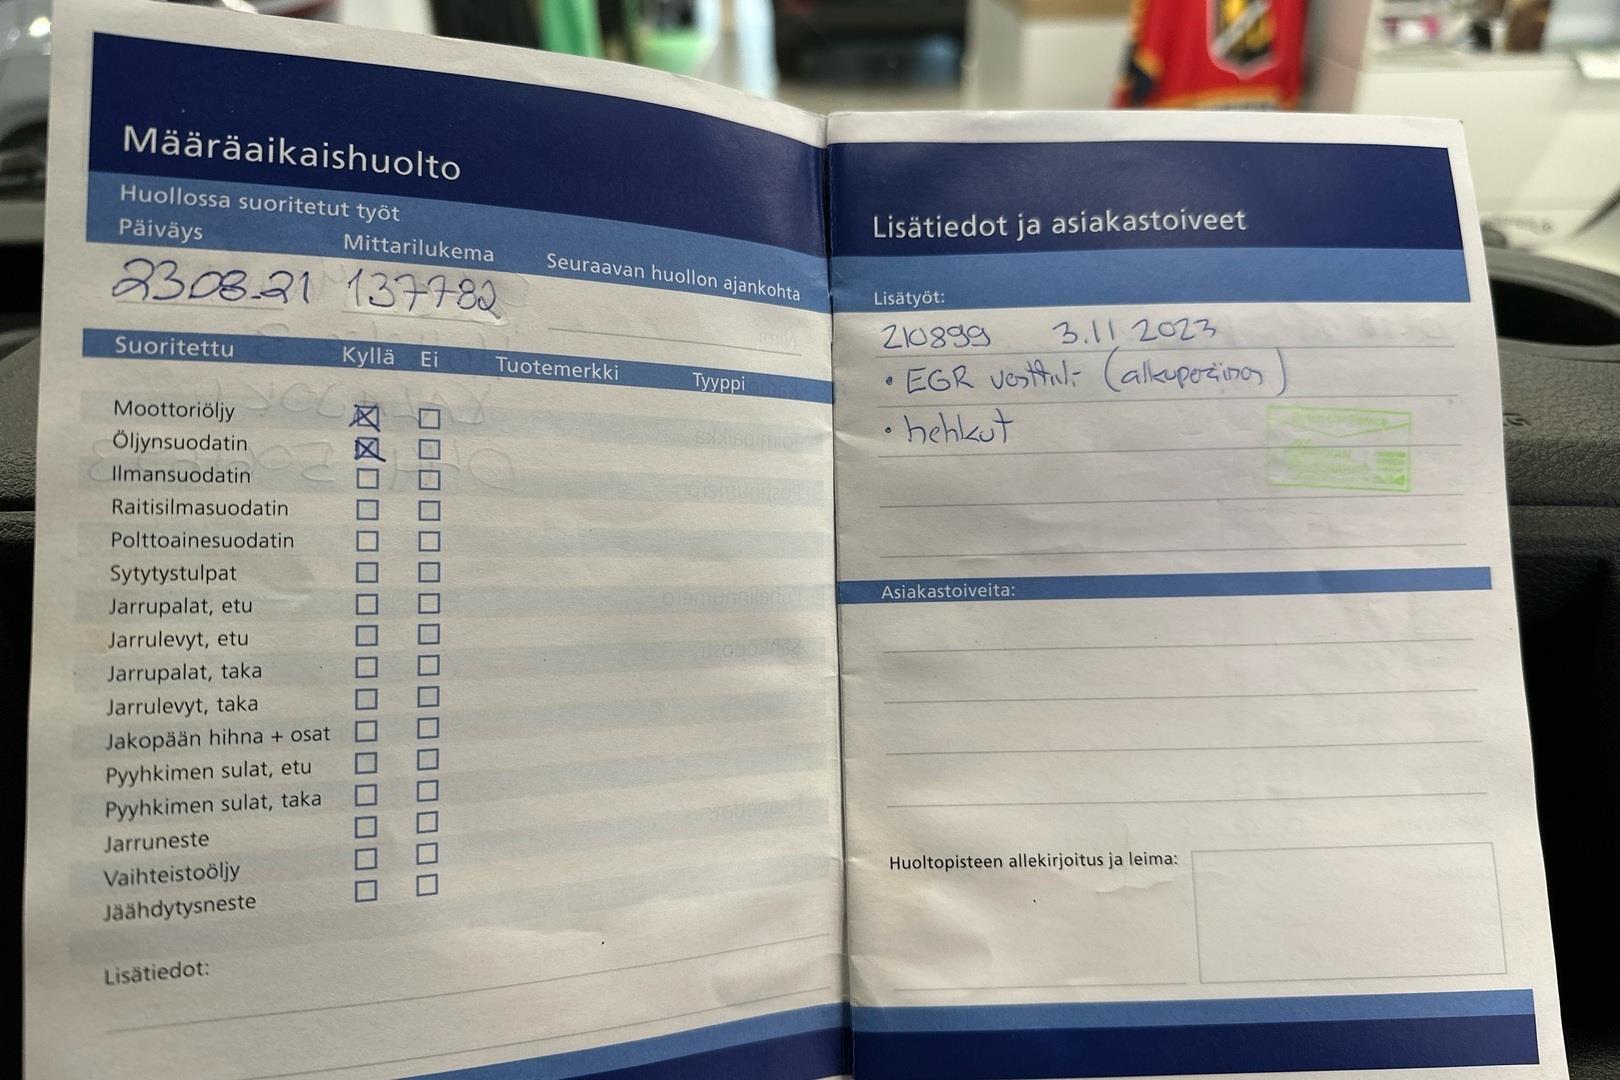 Määräaikaishuolto
Huollossa suoritetut työt
Päiväys Mittarilukema Seuraavan huollon ajankohta
23.08.21 137782
Suoritettu Kyllä Ei Tuotemerkki Tyyppi
Moottoriöljy
Öljynsuodatin
Ilmansuodatin
Raitisilmasuodatin
Polttoainesuodatin
Sytytystulpat
Jarrupalat, etu
Jarrulevyt, etu
Jarrupalat, taka
Jarrulevyt, taka
Jakopään hihna + osat
Pyyhkimen sulat, etu
Pyyhkimen sulat, taka
Jarruneste
Vaihteistoöljy
Jäähdytysneste
Lisätiedot:
Lisätiedot ja asiakastoiveet
Lisätyöt:
210899 3.11 2023
• EGR venttiili (alkuperäinen)
• hehkut
Asiakastoiveita:
Huoltopisteen allekirjoitus ja leima: